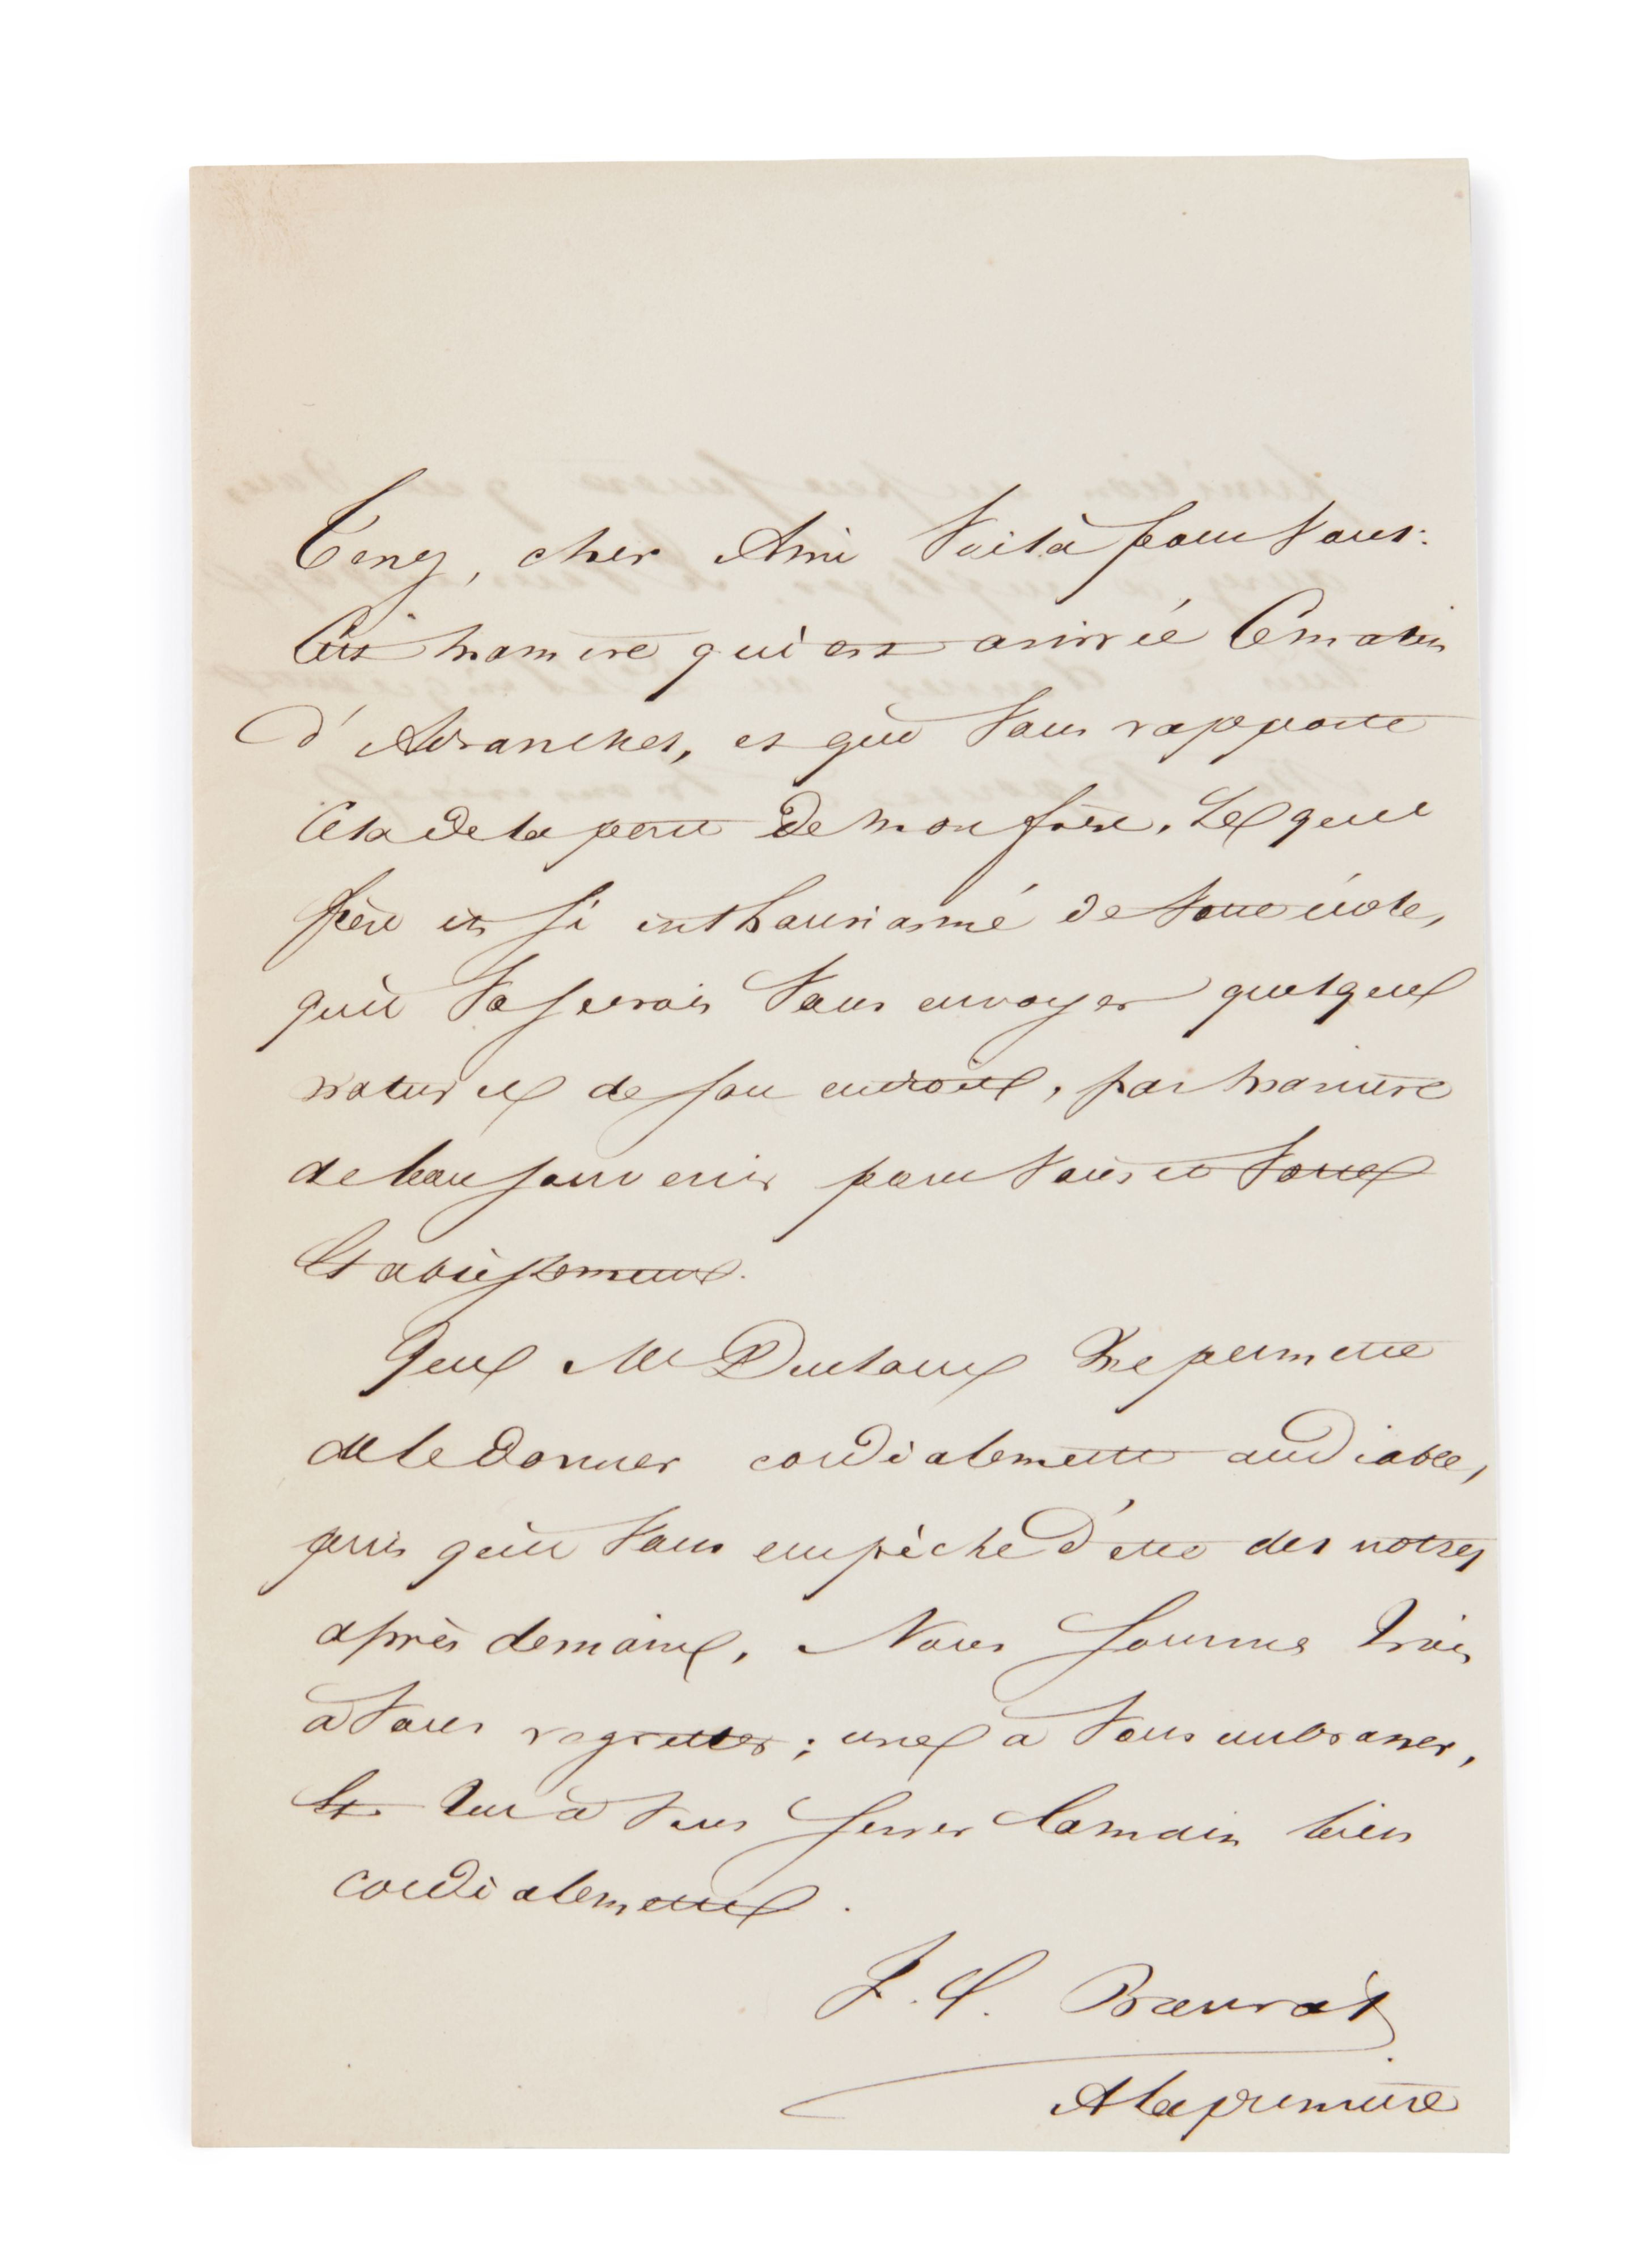 Tenez, cher Ami Voilà pour vous:
C'est ma mère qui est arrivée ce matin
d'Avranches, et qui vous rapporte
Cela de la part de mon frère. Lequel
frère est si enthousiasmé de votre école,
qu'il va, je crois vous envoyer quelques
naturels de son endroit, par manière
de bon souvenir pour vous et votre
Etablissement.
Que Mr Dutaux me permette
de le donner cordialement au diable,
puis qu'il vous empêche d'être des notres
après demain. Nous sommes trois
à vous regretter; une à vous embrasser,
Et à vous serrer la main bien
cordialement.
J. C.
A la première